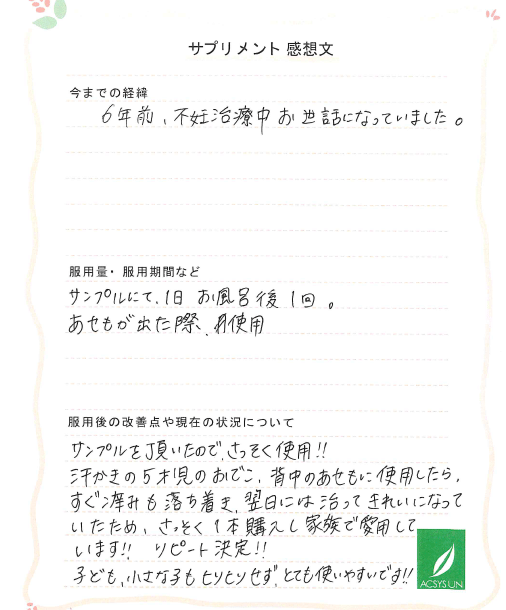 サプリメント 感想文
今までの経緯
6年前、不妊治療中お世話になっていました。
服用量・服用期間など
サンプルにて、1日 お風呂後 1回 。
あせもが出た際、使用
服用後の改善点や現在の状況について
サンプルを頂いたので、さっそく使用!!
汗かきの5才児のおでこ、背中のあせもに使用したら、
すぐ痒みも落ち着き、翌日には治ってきれいになって
いたため、さっそく1本購入し家族で愛用して
います!! リピート決定!!
子ども、小さな子もヒリヒリせず、とても使いやすいです!!
ACSYS UN